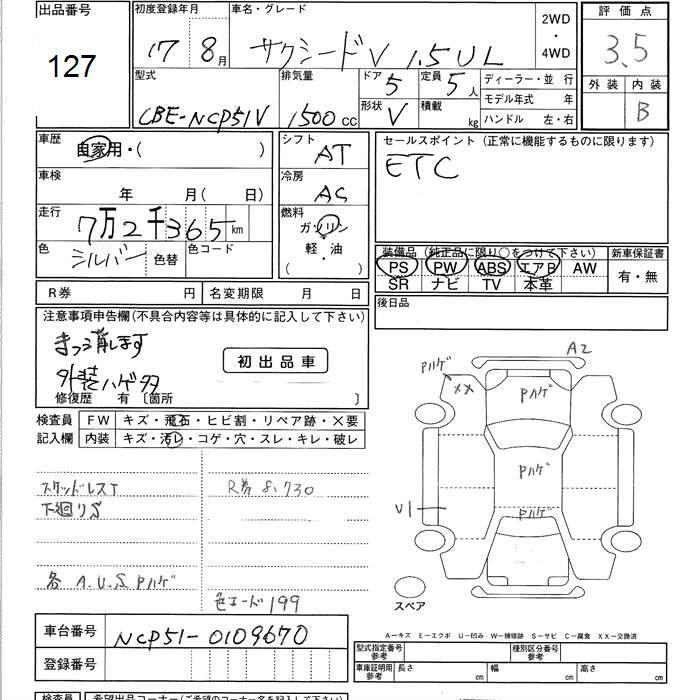 出品番号
127
初度登録年月
17 8月
車名・グレード
サクシードV 1.5UL
2WD
・
4WD
評価点
3.5
外装 内装
B
型式
CBE-NCP51V
排気量
1500 cc
ドア 5
形状 V
定員 5人
積載 kg
ディーラー・並 行
モデル年式 年
ハンドル 左・右
車歴
自家用・( )
車検
年 月( 日)
走行
7万2千365km
色
シルバー
色替
色コード
シフト
AT
冷房
AC
燃料
ガソリン
軽・油
( ・ )
セールスポイント(正常に機能するものに限ります)
ETC
装備品(純正品に限り○をつけて下さい)
PS PW ABS エアB AW
SR ナビ TV 本革
新車保証書
有・無
後日品
R券 円 名変期限 月 日
注意事項申告欄(不具合内容等は具体的に記入して下さい)
まっ消します
外装ハゲ多
初出品車
修復歴 有〔箇所 〕
検査員
記入欄
FW キズ・飛石・ヒビ割・リペア跡・×要
内装 キズ・汚レ・コゲ・穴・スレ・キレ・破レ
スタッドレスT
下廻りS
各 A.U.S Pハゲ
R券 8,730
色コード199
A2
Pハゲ
XX
Pハゲ
Pハゲ
Pハゲ
U1
スペア
A-キズ E-エクボ U-凹み W-補修跡 S-サビ C-腐食 XX-交換済
車台番号
NCP51-0109670
登録番号
型式指定番号
参考
種別区分番号
参考
車庫証明用
参考
長さ cm 幅 cm 高さ cm
検査員
希望出品コーナー(ご希望のコーナー名を記入して下さい)